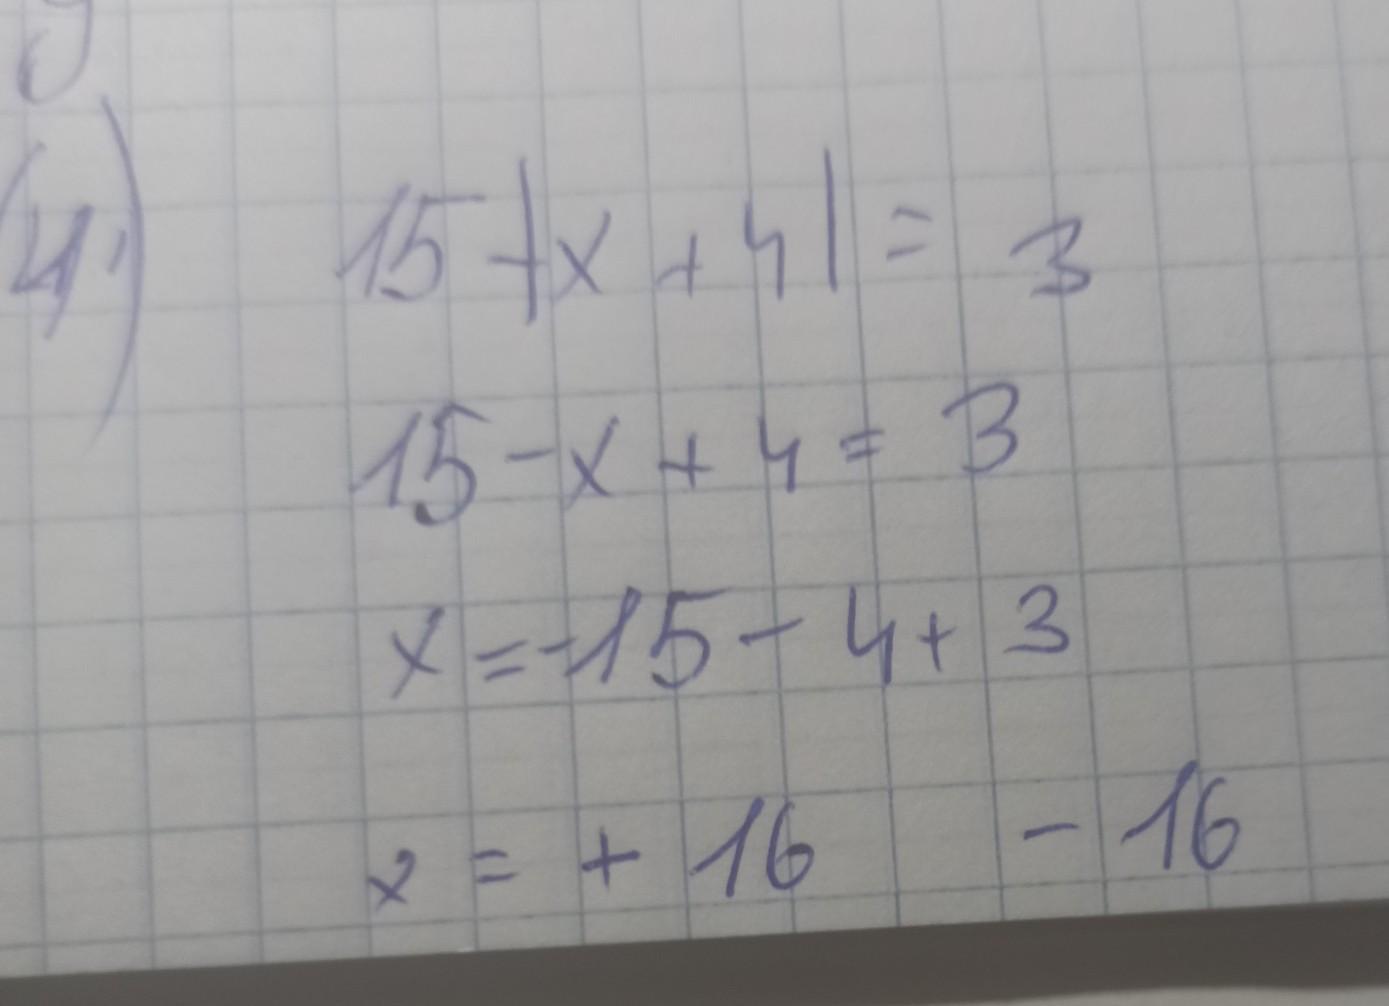 4) 15-|x+4| = 3
15-x+4=3
x=-15-4+3
x = + 16 - 16